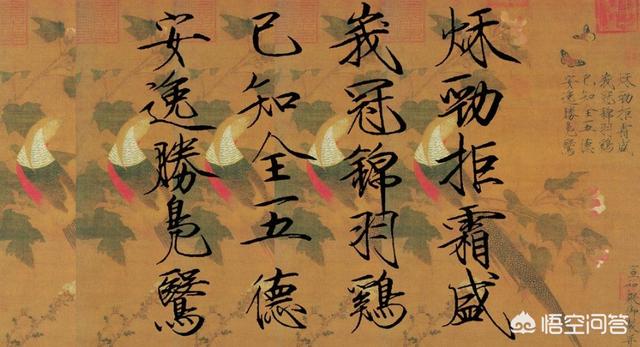 秋勁拒霜盛
峩冠錦羽鷄
已知全五德
安逸勝鳧鷖
秋勁拒霜盛
峩冠錦羽鷄
已知全五德
安逸勝鳧鷖
悟空问答